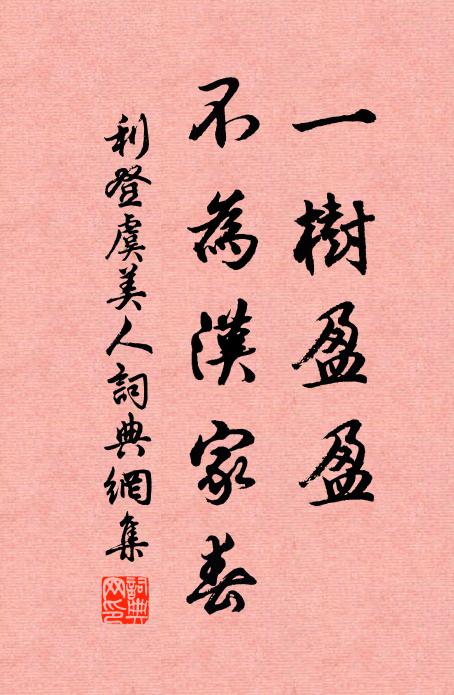 一樹盈盈
不為漢家春
利登虞美人詞典網集
詞典網印